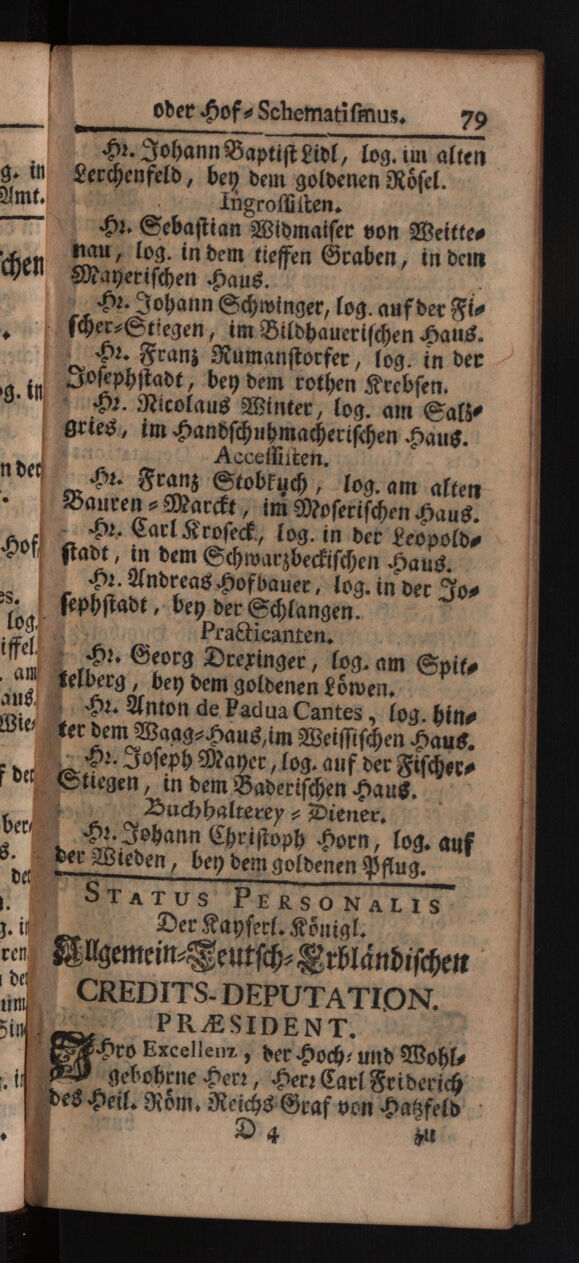 oder Hof-Schematismus. 79
Hr. Johann Baptist Lidl, log. im alten
Lerchenfeld, bey dem goldenen Rösel.
Ingrossisten.
Hr. Sebastian Widmaiser von Weitte-
nau, log. in dem tieffen Graben, in dem
Mayerischen Haus.
Hr. Johann Schwinger, log. auf der Fi-
scher-Stiegen, im Bildhauerischen Haus.
Hr. Franz Rumanstorfer, log. in der
Josephstadt, bey dem rothen Krebsen.
Hr. Nicolaus Winter, log. am Salz-
gries, im Handschuhmacherischen Haus.
Accessisten.
Hr. Franz Stobkych, log. am alten
Bauren-Marckt, im Moserischen Haus.
Hr. Carl Kroseck, log. in der Leopold-
stadt, in dem Schwarzbeckischen Haus.
Hr. Andreas Hofbauer, log. in der Jo-
sephstadt, bey der Schlangen.
Practicanten.
Hr. Georg Drexinger, log. am Spit-
telberg, bey dem goldenen Löwen.
Hr. Anton de Padua Cantes, log. hin-
ter dem Waag-Haus, im Weissischen Haus.
Hr. Joseph Mayer, log. auf der Fischer-
Stiegen, in dem Baderischen Haus.
Buchhalterey-Diener.
Hr. Johann Christoph Horn, log. auf
der Wieden, bey dem goldenen Pflug.
STATUS PERSONALIS
Der Kayserl. Königl.
Allgemein-Teutsch-Erbländischen
CREDITS-DEPUTATION.
PRÆSIDENT.
IHro Excellenz, der Hoch- und Wohl-
gebohrne Herr, Herr Carl Friderich
des Heil. Röm. Reichs Graf von Hatzfeld
D 4 zu